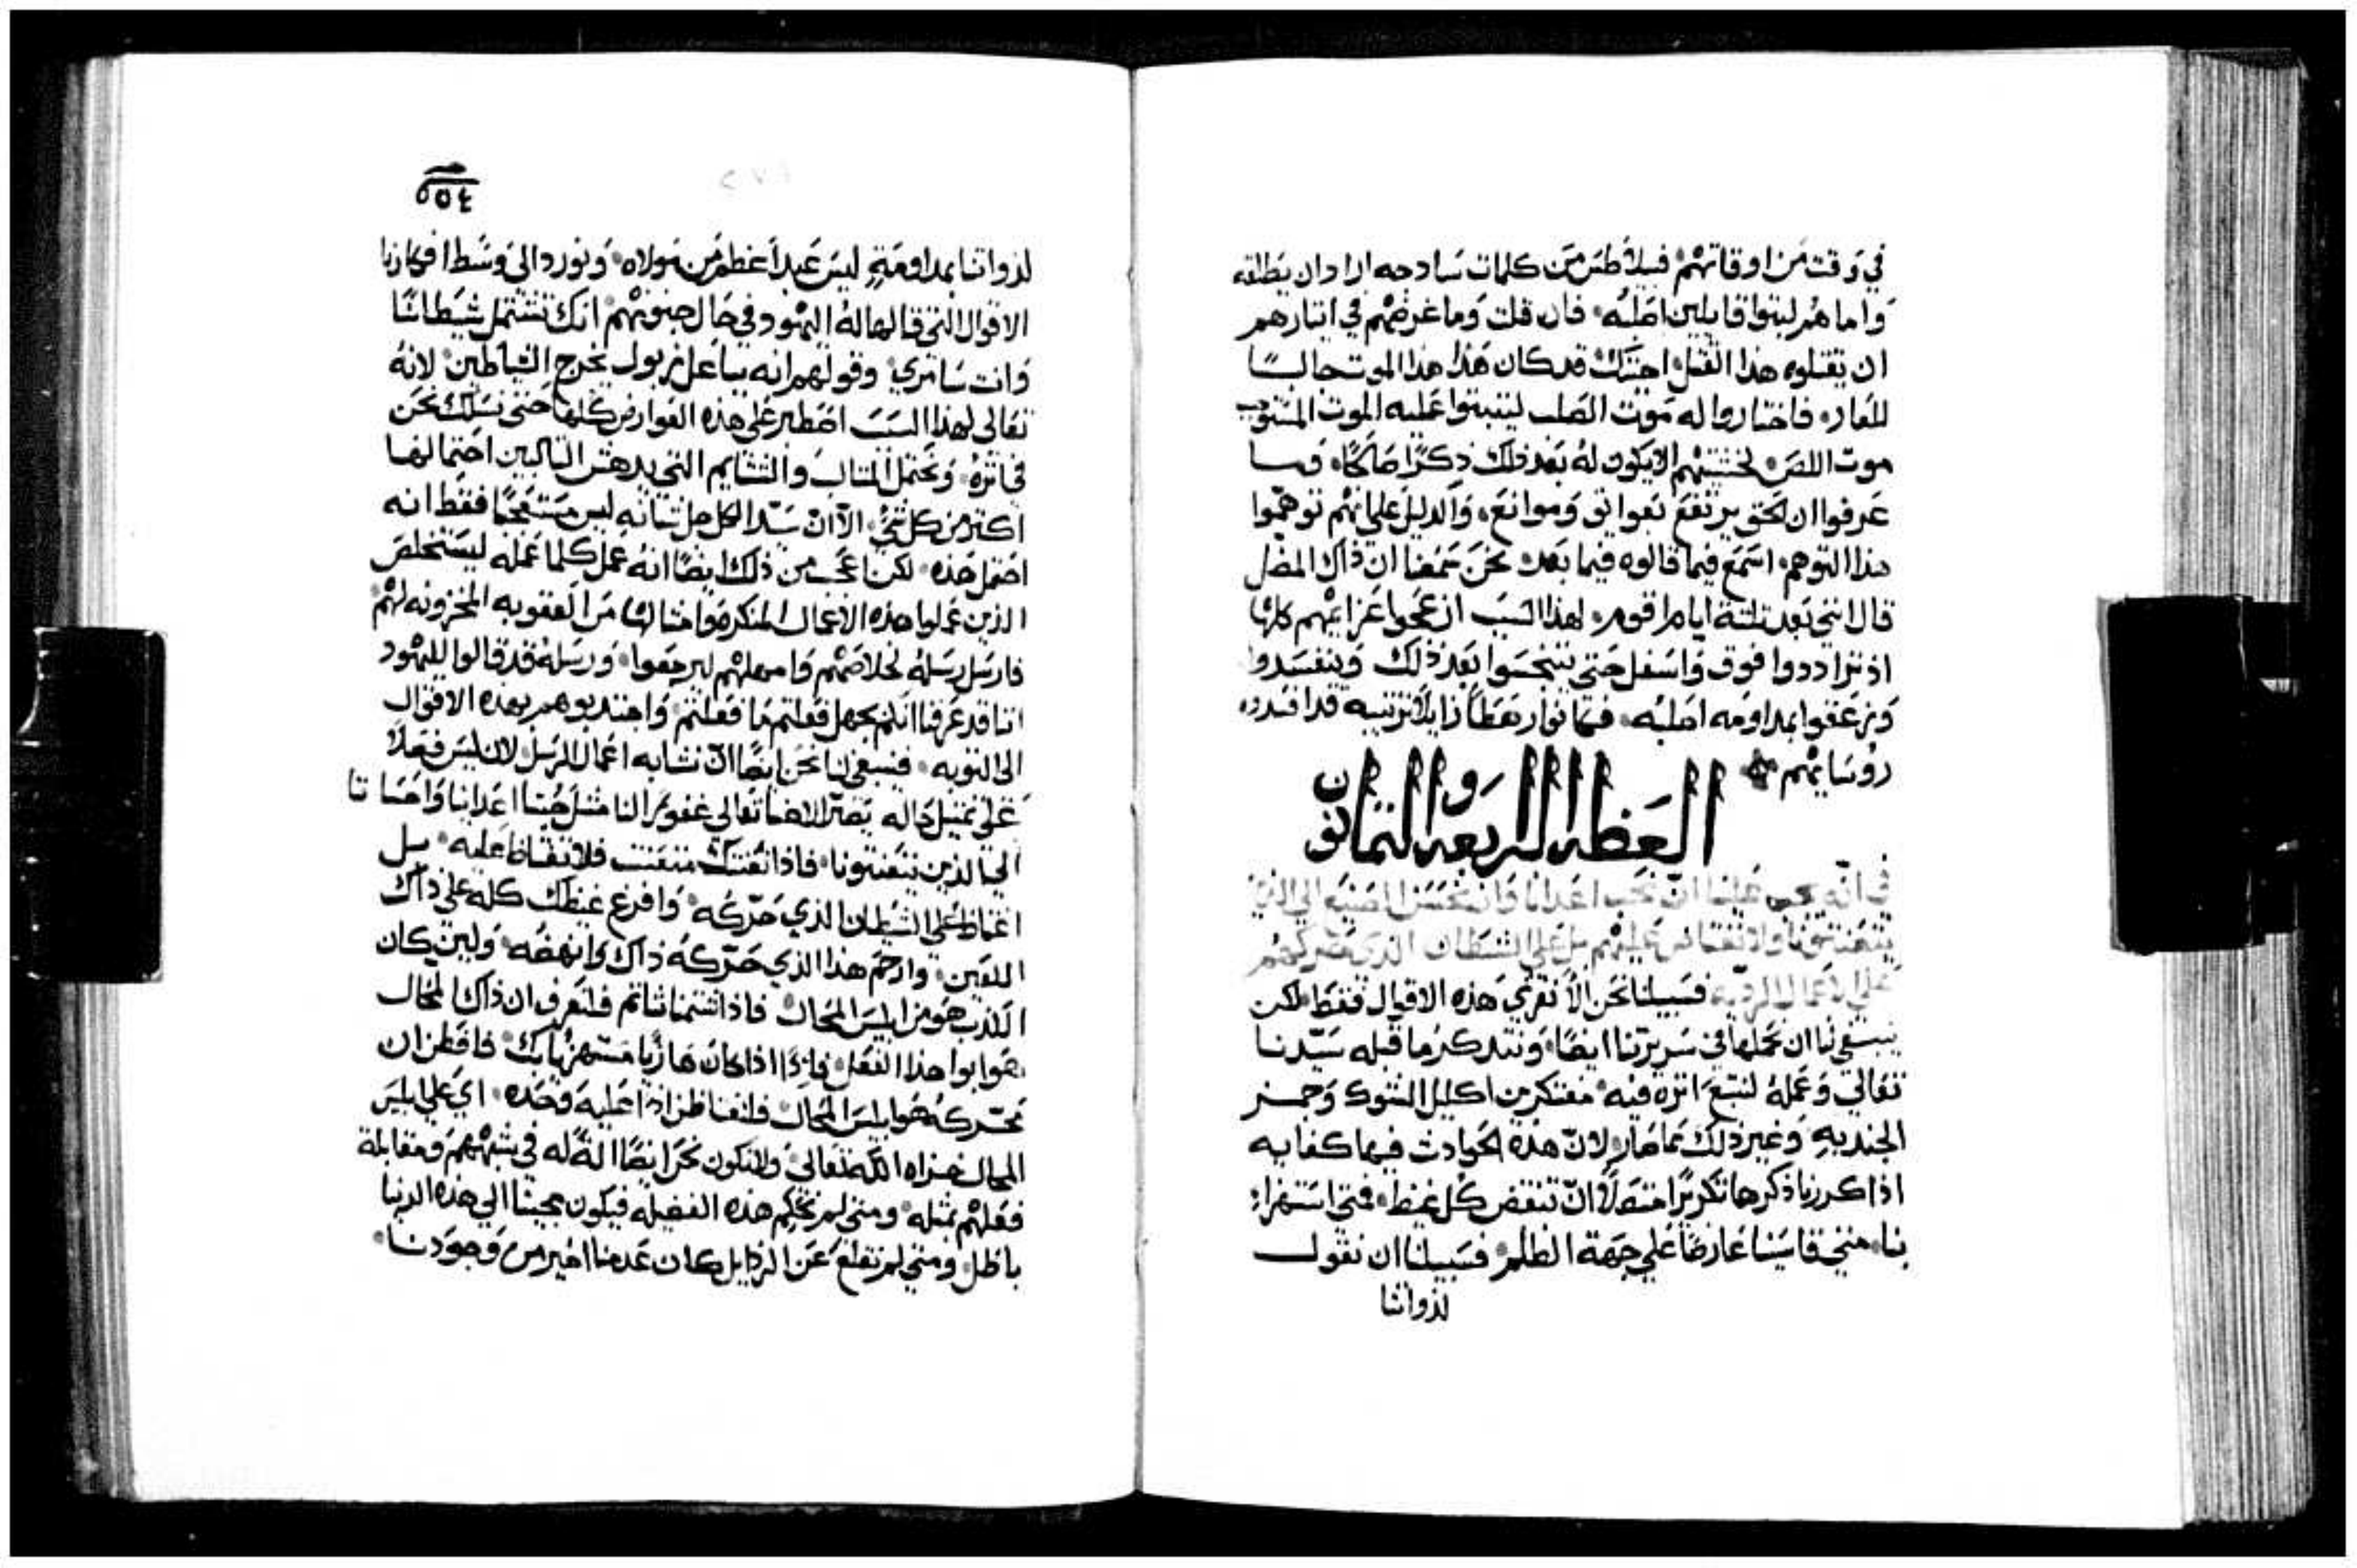 في وقت من اوقاتهم فبيلاطس من كلمات سادجه اراد ان يطلقه
واما هم لبتوا قايلين اصلبه فان قلت وما غرضهم في ايتارهم
ان يقتلوه هذا القتل اجبتك قد كان هذا الموت جالبًا
للعار فاختاروا له موت الصلب ليتبتوا عليه الموت المستوجب
موت اللص لخشيتهم الا يكون له بعد ذلك ذكرًا صالحًا وما
عرفوا ان الحق يرتفع بعوايق وموانع والدليل على انهم توهموا
هذا التوهم اسمع فيما قالوه فيما بعد نحن سمعنا ان ذاك المضل
قال انني بعد تلتة ايام اقوم لهذا السبب ازعجوا عزايمهم كلها
اذ ترادوا فوق واسفل حتى يتنجسوا بعد ذلك ويتفسدوا
وزعقوا بمداومه اصلبه فتقانوا رهطا زايلا ترتيبه قد افسدوه
روسايهم
العظه الرابعه والتمانون
في انه يجب علينا ان نحب اعدانا وان نحسن الصنيع الى الذين
يتعنتونا ولا نغتاظ عليهم بل على الشيطان الذي حركهم
على الاعمال الرديه فسبيلنا نحن الا نقري هذه الاقوال فقط لكن
ينبغي لنا ان نحملها في سريرتنا ايضًا ونتدكر ما قبله سيدنا
تعالى وعمله لنتبع اتره فيه مفتكرين اكليل الشوك وجمز
الجنديه وغير ذلك مما صار لان هذه الحوادث فيها كفايه
اذا كررنا ذكرها تكريرًا متصلًا ان تنقض كل غيظ فمتى استهزا
بنا متى قاسينا عارضًا على جهة الظلم فسبيلنا ان نقول
لذواتنا
٤٥٥
لذواتنا بمداومة ليس عبدا اعظم من مولاه ونورد الى وسط افكارنا
الاقوال التي قالها له اليهود في حال جنونهم انك تشتمل شيطانًا
وانت سامري وقولهم انه بباعلزبول يخرج الشياطين لانه
تعالى لهذا السبب اصطبر على هذه العوارض كلها حتى نسلك نحن
في اتره ونحتمل المتالب والشتايم التي يدهش التالبين احتمالها
اكتر من كل شي الا ان سيد الكل جل تناته ليس مستفحًا فقط انه
احتمل هذه لكن اعجب من ذلك ايضًا انه عمل كلما عمله ليستخلص
الذين عملوا هذه الاعمال المنكره واختالوها من العقوبه المخزونه لهم
فارسل رسله لخلاصهم وامهلهم ليرجعوا ورسله قد قالوا لليهود
اننا قد عرفنا انكم بجهل فعلتم ما فعلتم واجتدبوهم بهده الاقوال
الى التوبه فينبغي لنا نحن ايضًا ان نشابه اعمال الرسل لان ليس فعلًا
على تمتيل حاله يصير الاهنا تعالى غفورًا لنا متل حبنا اعداينا واحساننا
الى الذين يتعنتونا فاذا تعنتك متعنت فلا تغتاظ عليه بل
اغتاظ على الشيطان الذي حركه وافرغ غيظك كله على ذاك
اللعين وارحم هذا الذي حركه ذاك وانهضه ولين كان
الكذب هو من ابليس المحال فاذا شتمنا شاتم فلنعرف ان ذاك المحال
هو ابوا هذا الفعل فاذًا اذا كان هازيًا مستهزيًا بك فافطن ان
محركه هو ابليس المحال فلنغتاظن اذا عليه وحده اي على ابليس
المحال خزاه الله تعالى ولا نكون نحن ايضًا الة له في شبههم ومقابلة
فعلهم بمتله ومتى لم نحكم هذه الفضيله فيكون مجيتنا الى هذه الدنيا
باطل ومتى لم نقلع عن الردايل كان عدمنا اخير من وجودنا